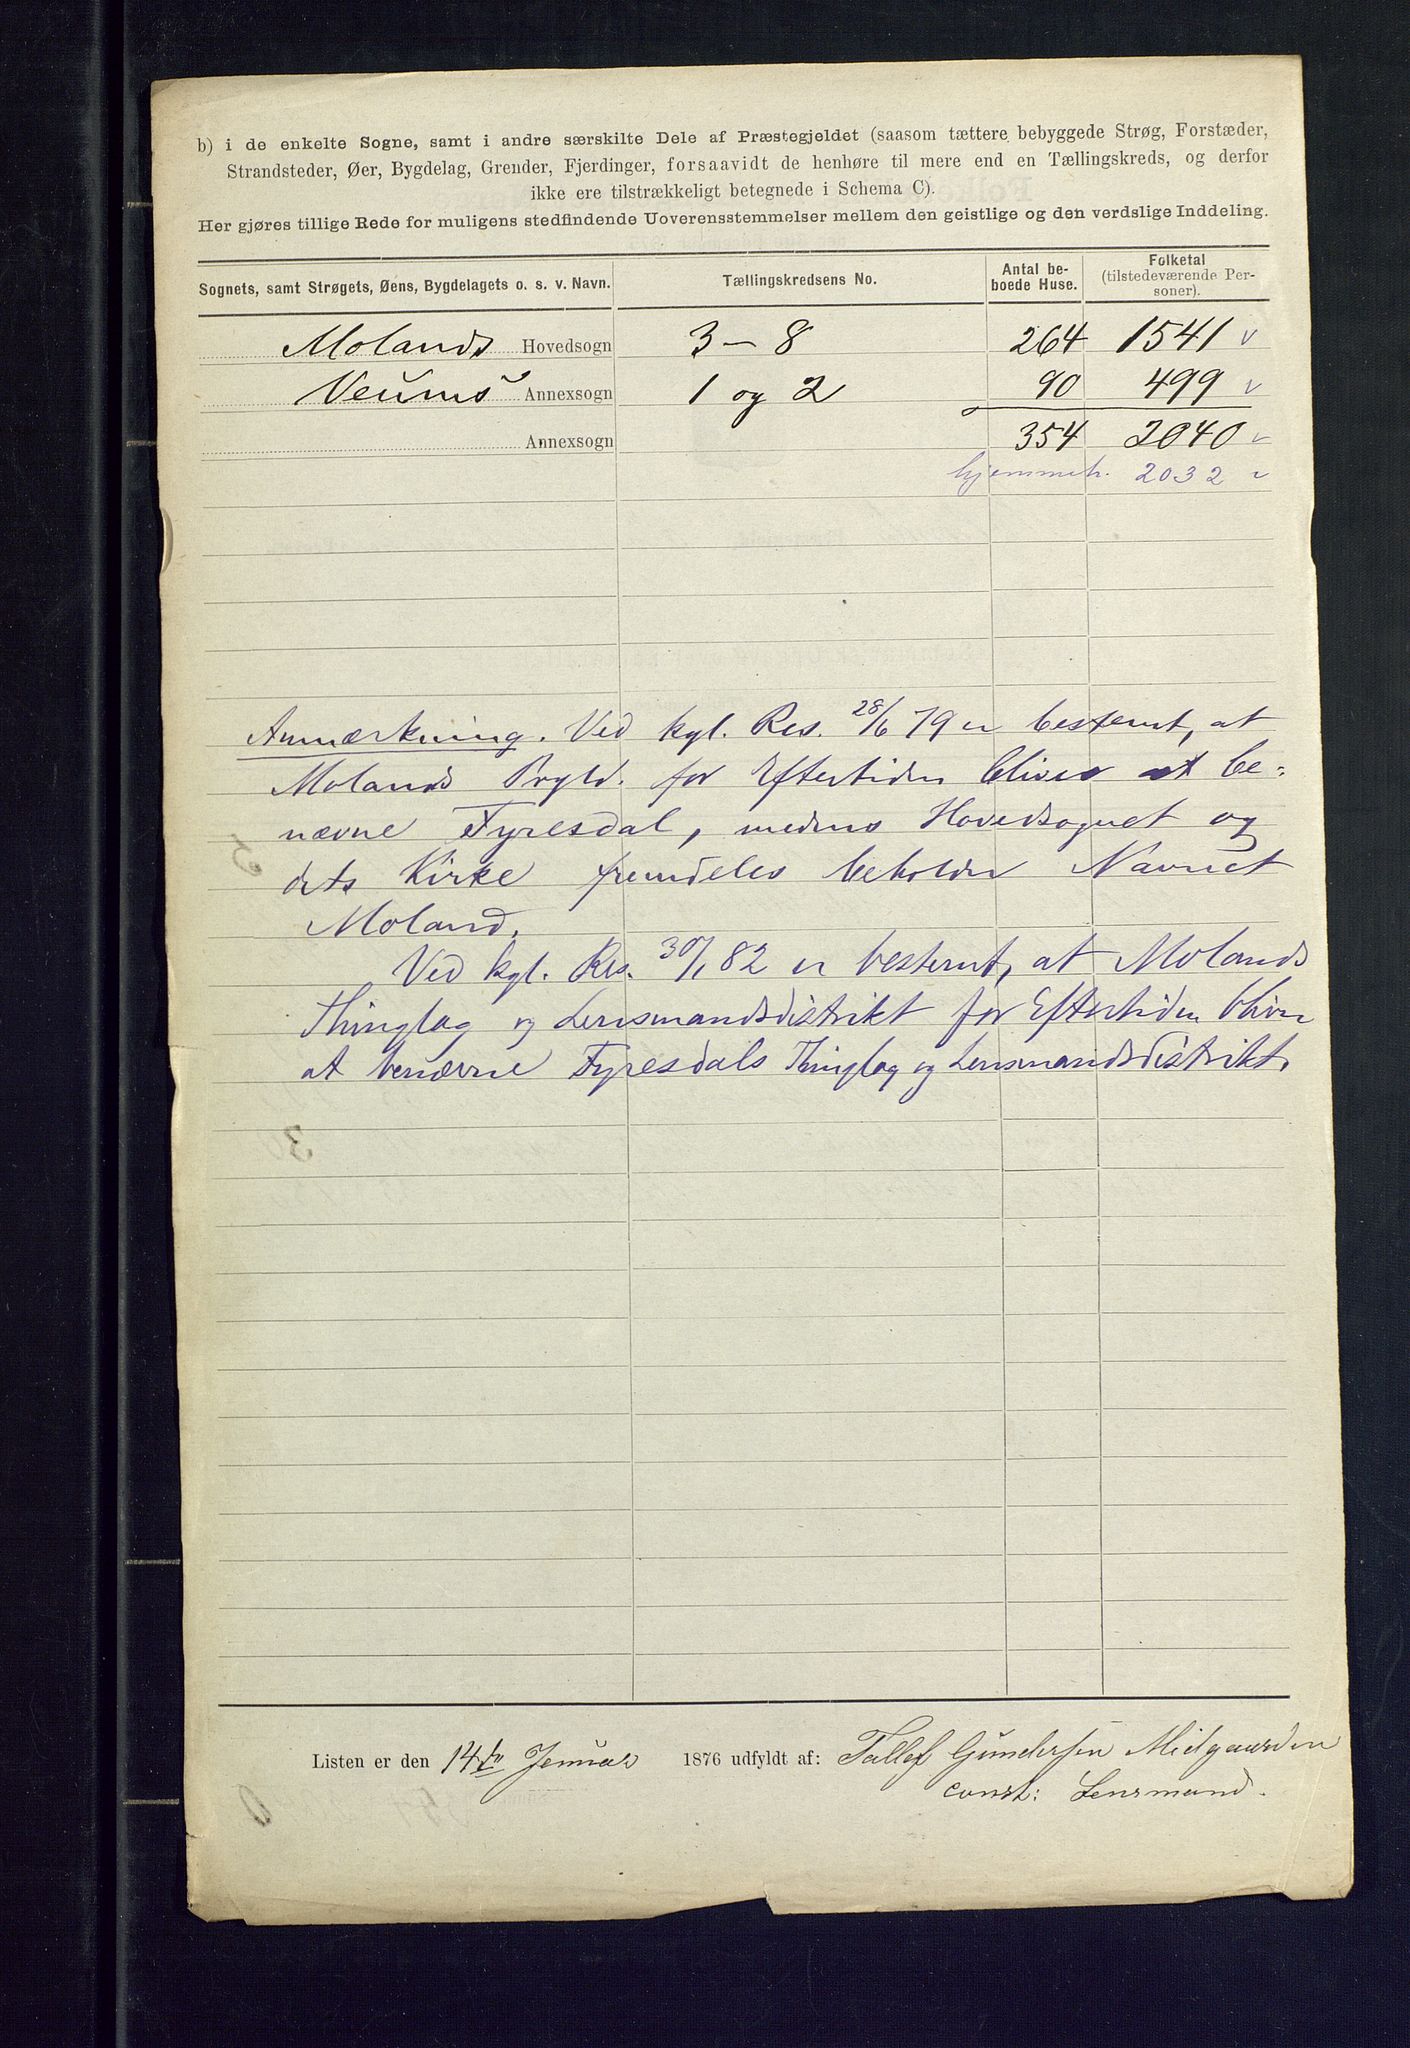 b) i de enkelte Sogne, samt i andre særskilte Dele af Præstegjeldet (saasom tættere bebyggede Strøg, Forstæder,
Strandsteder, Øer, Bygdelag, Grender, Fjerdinger, forsaavidt de henhøre til mere end en Tællingskreds, og derfor
ikke ere tilstrækkeligt betegnede i Schema C).
Her gjøres tillige Rede for muligens stedfindende Uoverensstemmelser mellem den geistlige og den verdslige Inddeling.
Sognets, samt Strøgets, Øens, Bygdelagets o. s. v. Navn. Tællingskredsens No. Antal beboede Huse. Folketal (tilstedeværende Personer).
Molands Hovedsogn 3-8 264 1541 v
Veums Annexsogn 1 og 2 90 499 v
Annexsogn 354 2040 v
hjemmeh. 2032 v
Anmærkning. Ved kgl. Res. 28/6 79 er bestemt, at
Molands Prgld. for Eftertiden bliver at be-
nævne Fyresdal, medens Hovedsognet og
dets Kirke fremdeles beholder Navnet
Moland.
Ved kgl. Res. 30/1 82 er bestemt, at Molands
Thinglag og Lensmandsdistrikt for Eftertiden bliver
at benævne Fyresdals Thinglag og Lensmandsdistrikt.
Listen er den 14de Januar 1876 udfyldt af: Tallef Gundersen Midgaarden
const: Lensmand.